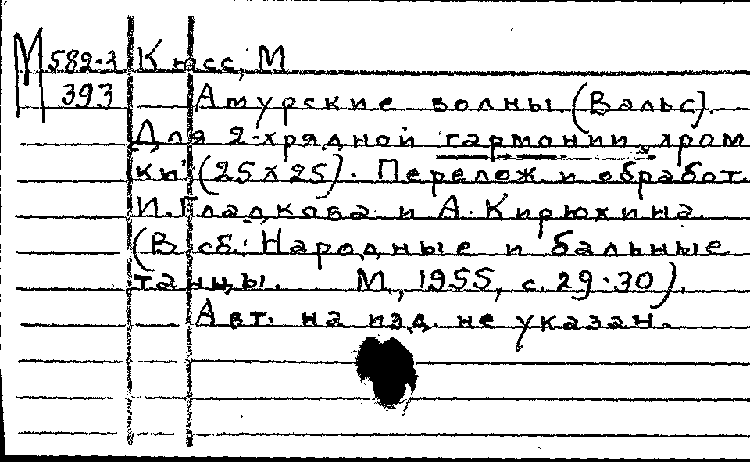 М 582-3 Кюсс, М
393 Амурские волны (Вальс).
Для 2-хрядной гармонии хром
ки (25x25). Перелож и обработ.
И. Гладкова и А. Кирюхина
(В сб.: Народные и бальные
танцы. М., 1955, с. 29-30).
Авт. на изд. не указан.